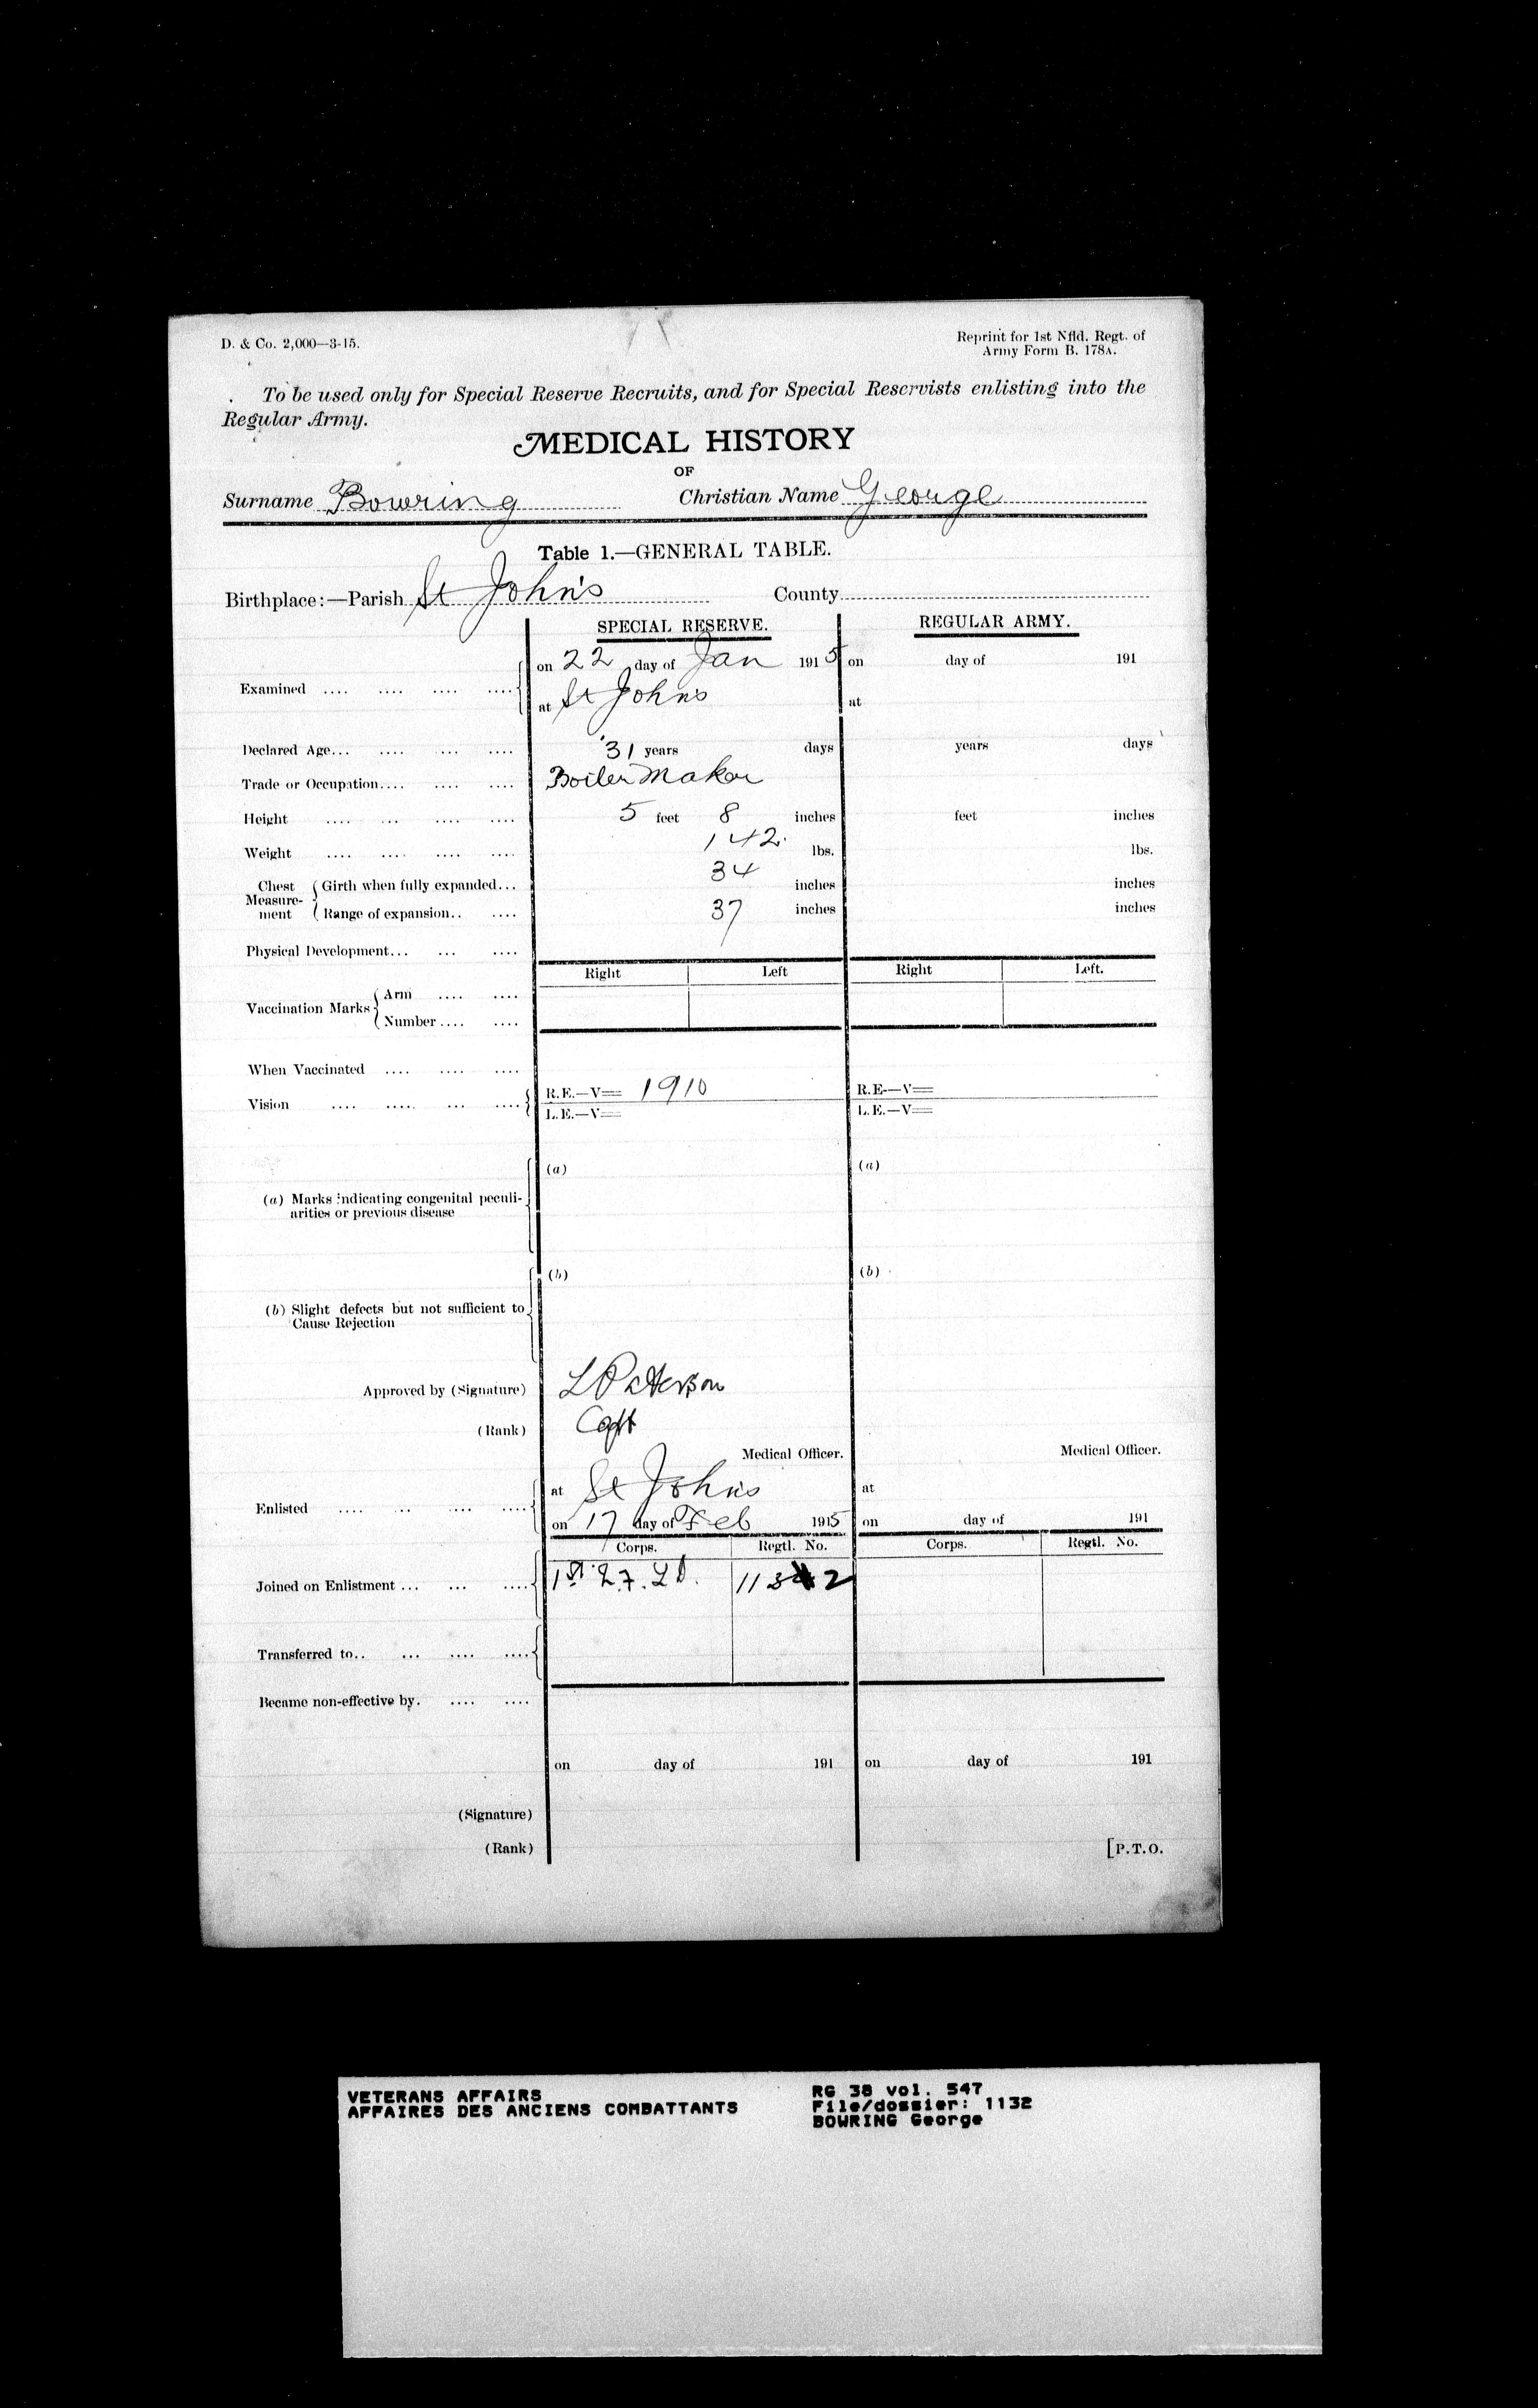 D. & Co. 2,000—3-15.
Reprint for 1st Nfld. Regt. of
Army Form B. 178A.
To be used only for Special Reserve Recruits, and for Special Reservists enlisting into the
Regular Army.
MEDICAL HISTORY
OF
Surname Bowring Christian Name George
Table 1.—GENERAL TABLE.
Birthplace:—Parish St John's County
SPECIAL RESERVE. REGULAR ARMY.
on 22 day of Jan 1915 on day of 191
Examined .... .... .... ....
at St John's at
Declared Age... .... ... .... 31 years days years days
Trade or Occupation.... .... .... Boiler Maker
Height .... ... .... .... 5 feet 8 inches feet inches
Weight .... .... .... .... 142 lbs. lbs.
Chest Measurement Girth when fully expanded... 34 inches inches
Range of expansion.. .... 37 inches inches
Physical Development... ... ....
Right Left Right Left.
Vaccination Marks Arm .... ....
Number .... ....
When Vaccinated .... .... ....
Vision .... .... ... .... R.E.—V= 1910 R.E.—V=
L.E.—V= L.E.—V=
(a) (a)
(a) Marks indicating congenital peculi-
arities or previous disease
(b) (b)
(b) Slight defects but not sufficient to
Cause Rejection
Approved by (Signature) L Paterson
(Rank) Capt
Medical Officer. Medical Officer.
at St John's at
Enlisted .... ... .... ....
on 17 day of Feb 1915 on day of 191
Corps. Regtl. No. Corps. Regtl. No.
Joined on Enlistment ... ... .... 1st
Transferred to.. ... .... ....
Became non-effective by. .... ....
on day of 191 on day of 191
(Signature)
(Rank)
[P.T.O.
VETERANS AFFAIRS
AFFAIRES DES ANCIENS COMBATTANTS
RG 38 vol. 547
File/dossier: 1132
BOWRING George